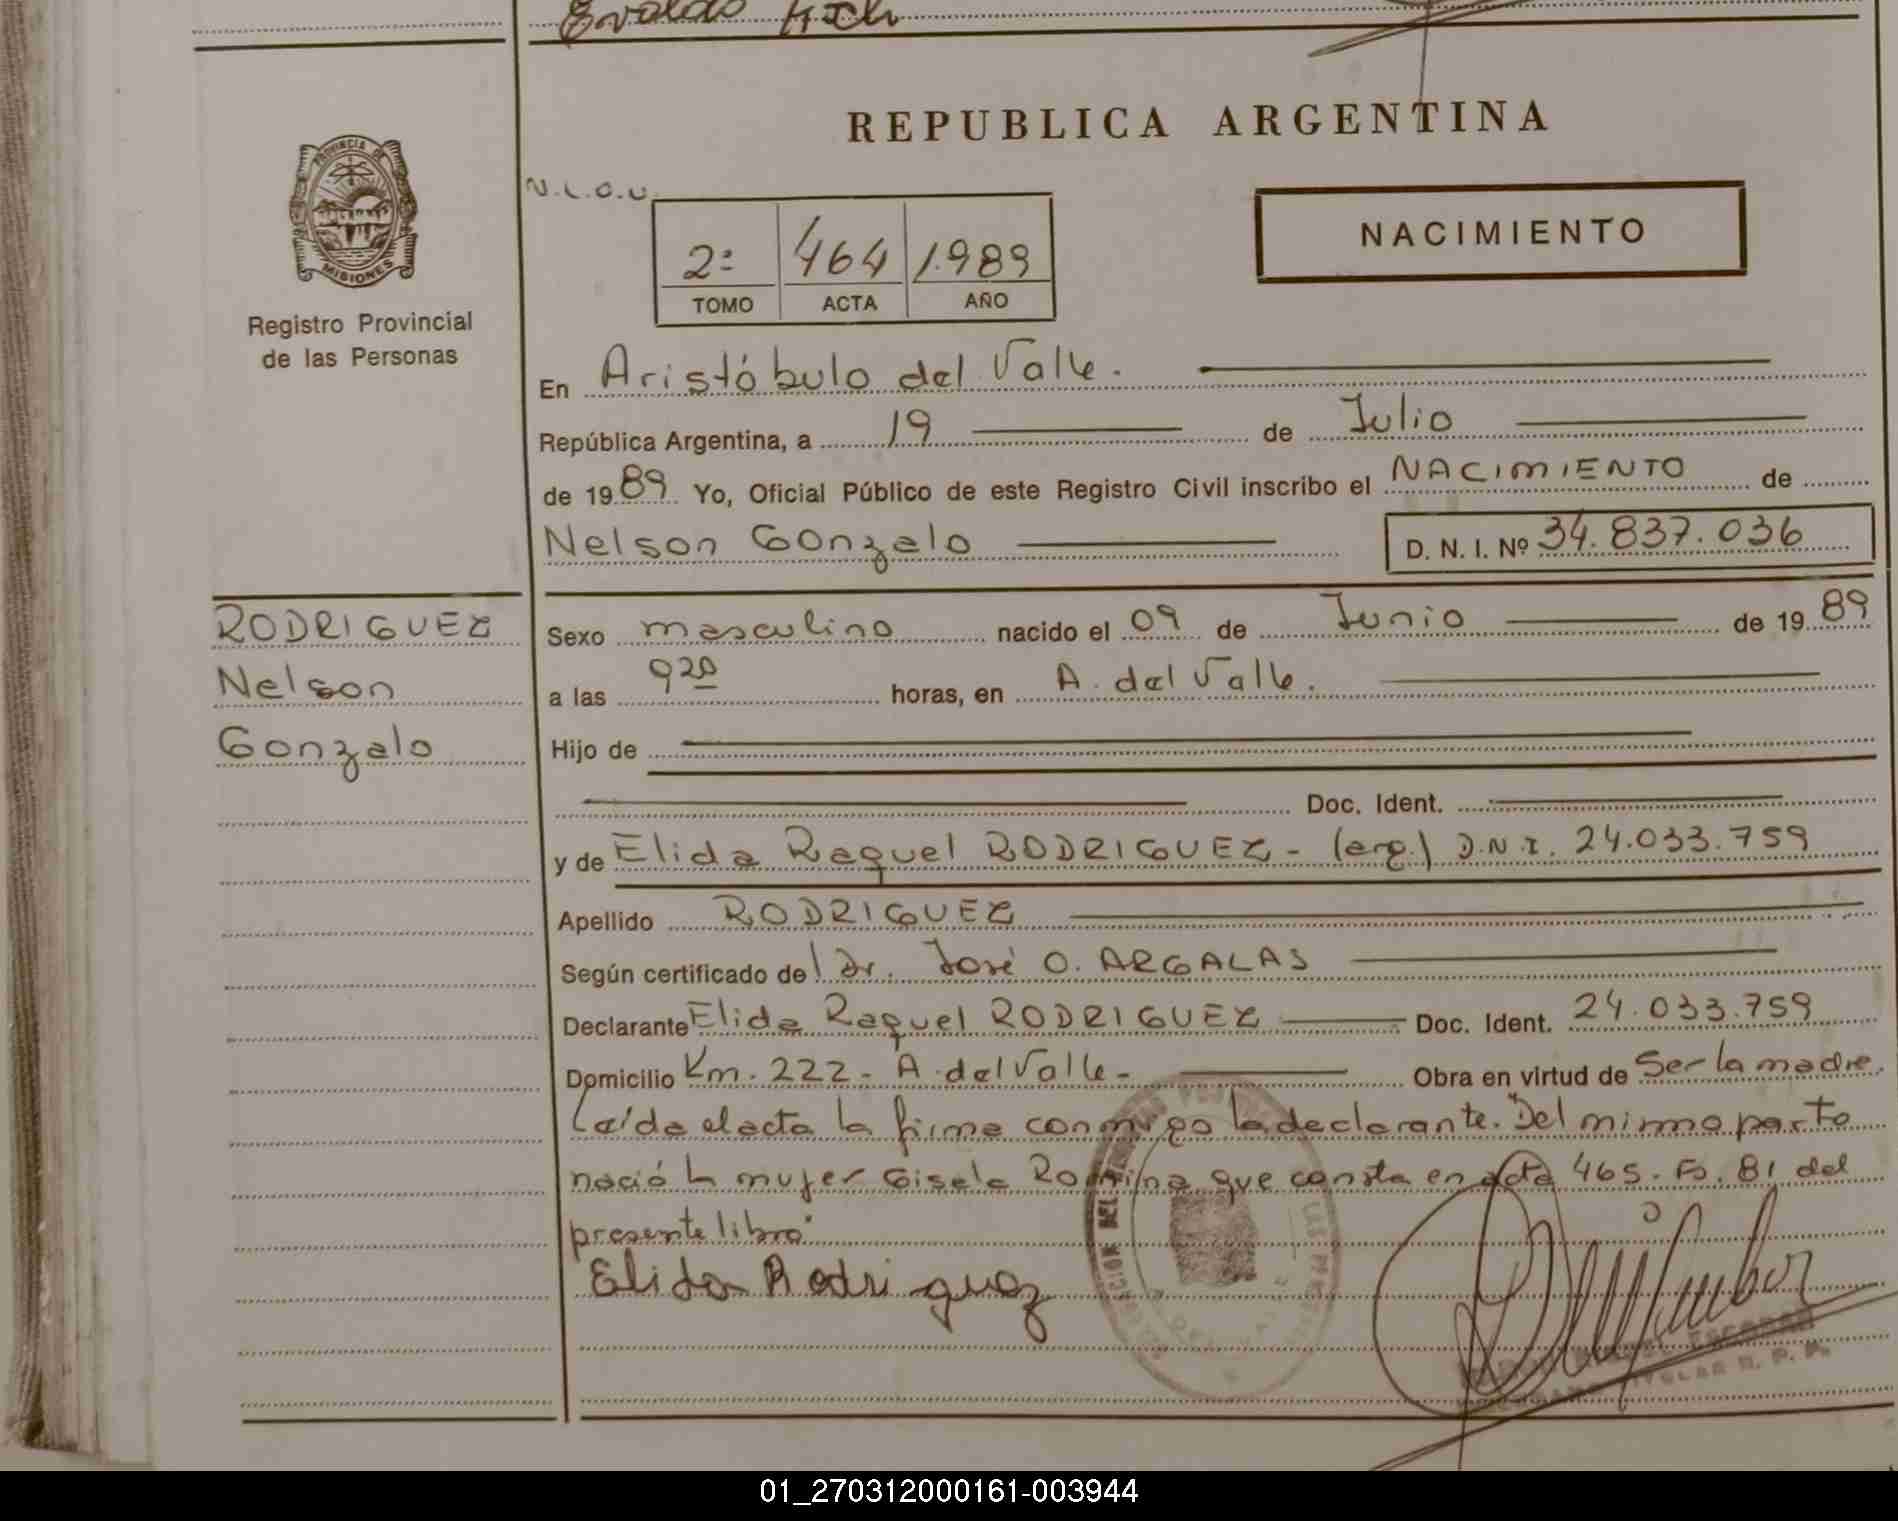 Evaldo
REPUBLICA ARGENTINA
PROVINCIA DE
MISIONES
Registro Provincial
de las Personas
N.L.O.U.
2º 464 1.989
TOMO ACTA AÑO
NACIMIENTO
En Aristóbulo del Valle.
República Argentina, a 19 de Julio
de 1989 Yo, Oficial Público de este Registro Civil inscribo el NACIMIENTO de
Nelson Gonzalo D. N. I. Nº 34.837.036
RODRIGUEZ
Nelson
Gonzalo
Sexo masculino nacido el 09 de Junio de 1989
a las 9 20 horas, en A. del Valle.
Hijo de
Doc. Ident.
y de Elida Raquel RODRIGUEZ - (arg.) D.N.I. 24.033.759
Apellido RODRIGUEZ
Según certificado del Dr. José O. ARGALAS
Declarante Elida Raquel RODRIGUEZ Doc. Ident. 24.033.759
Domicilio Km. 222 - A. del Valle - Obra en virtud de Ser la madre.
Leída el acta la firma conmigo la declarante. "Del mismo parto
nació la mujer Gisela Romina que consta en acta 465. Fs. 81 del
presente libro"
Elida Rodriguez
ESCOBAR
TITULAR R. P. P.
01_270312000161-003944